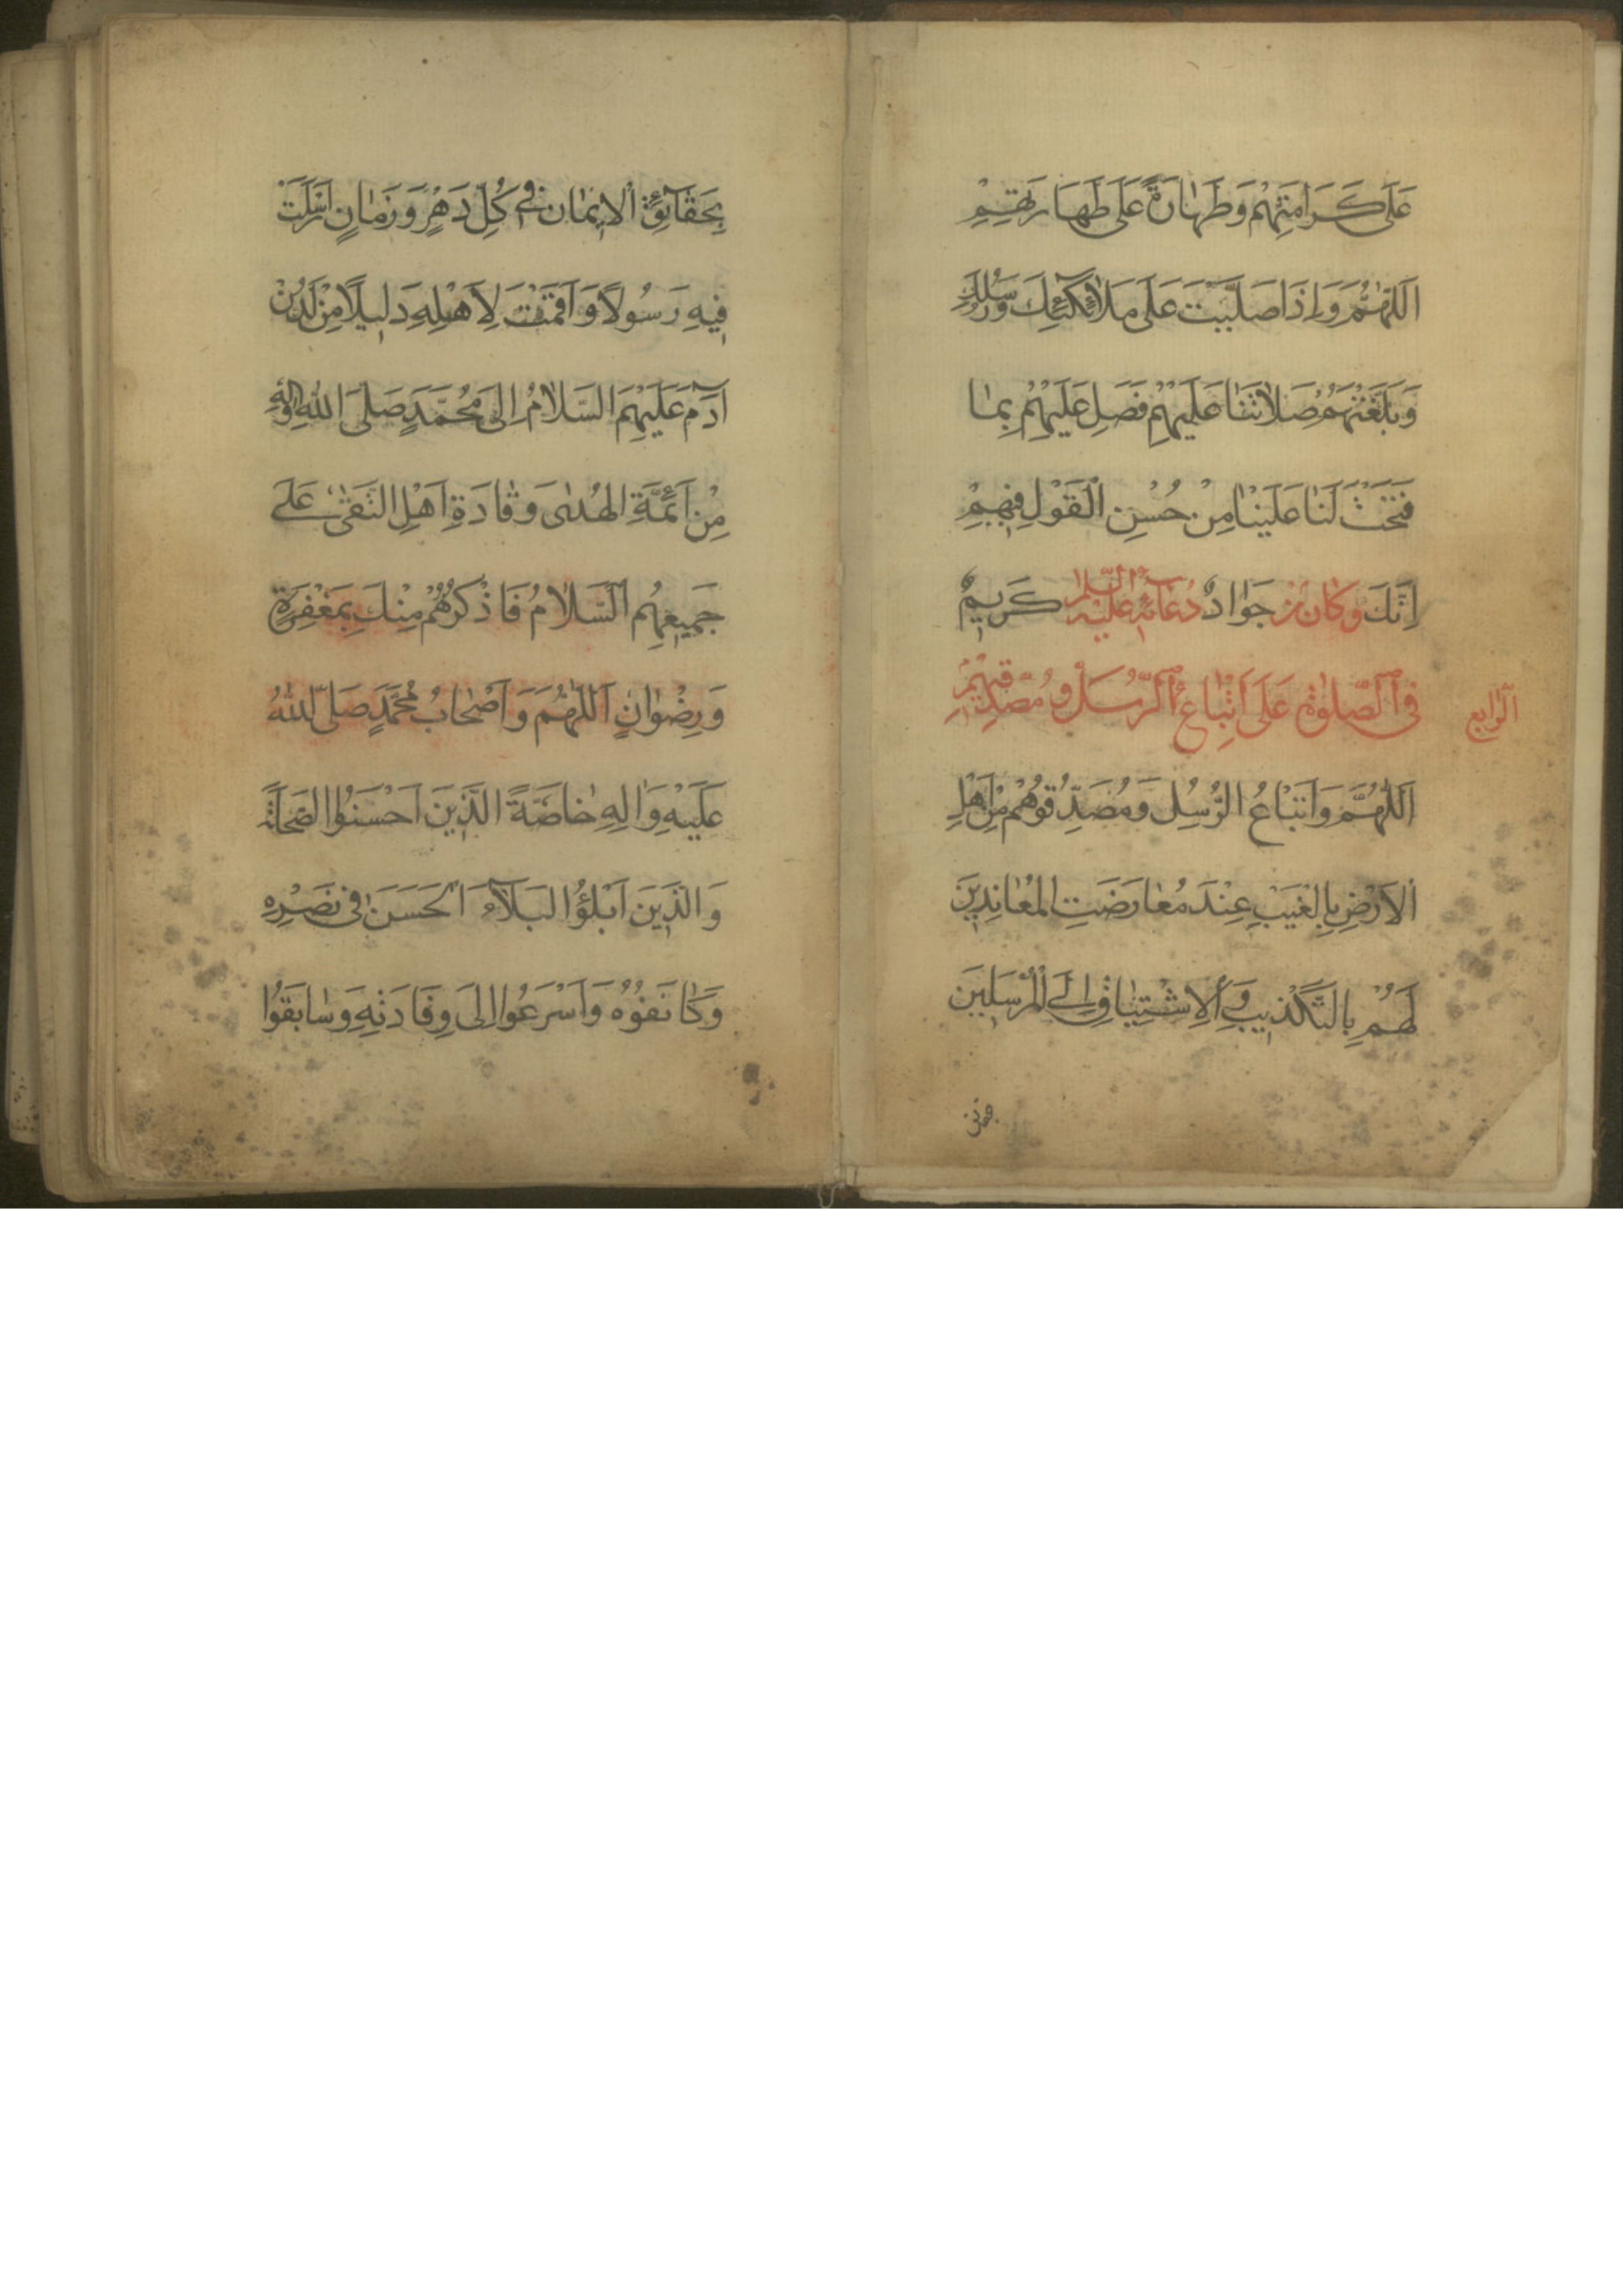 عَلَى كَرَامَتِهِمْ وَطَهَارَةً عَلَى طَهَارَتِهِمْ
اَللّٰهُمَّ وَاِذَا صَلَّيْتَ عَلَى مَلَائِكَتِكَ وَرُسُلِكَ
وَبَلَّغْتَهُمْ صَلَاتَنَا عَلَيْهِمْ فَصَلِّ عَلَيْهِمْ بِمَا
فَتَحْتَ لَنَا عَلَيْنَا مِنْ حُسْنِ الْقَوْلِ فِيهِمْ
اِنَّكَ جَوَادٌ كَرِيمٌ وَكَانَ مِنْ دُعَائِهِ عَلَيْهِ السَّلَام
فِي الصَّلوٰةِ عَلَى اَتْبَاعِ الرُّسُلِ وَمُصَدِّقِيهِمْ
الرابع
اَللّٰهُمَّ وَاَتْبَاعُ الرُّسُلِ وَمُصَدِّقُوهُمْ مِنْ اَهْلِ
الْاَرْضِ بِالْغَيْبِ عِنْدَ مُعَارَضَتِ الْمُعَانِدِينَ
لَهُمْ بِالتَّكْذِيبِ وَالْاِشْتِيَاقِ اِلَى الْمُرْسَلِينَ
بِحَقَآئِقِ الْاِيمَانِ فِي كُلِّ دَهْرٍ وَزَمَانٍ اَرْسَلْتَ
فِيهِ رَسُولًا وَاَقَمْتَ لِاَهْلِهِ دَلِيلًا مِنْ لَدُنْ
آدَمَ عَلَيْهِمَ السَّلَامُ اِلَى مُحَمَّدٍ صَلَّى اللهُ وَآلِهِ
مِنْ اَئِمَّةِ الْهُدَى وَقَادَةِ اَهْلِ التُّقَى عَلَى
جَمِيعِهِمُ السَّلَامُ فَاذْكُرْهُمْ مِنْكَ بِمَغْفِرَةٍ
وَرِضْوَانٍ اَللّٰهُمَّ وَاَصْحَابُ مُحَمَّدٍ صَلَّى اللهُ
عَلَيْهِ وَالِهِ خَاصَّةً الَّذِينَ اَحْسَنُوا الصَّحَابَةَ
وَالَّذِينَ اَبْلَؤُا الْبَلَآءَ الْحَسَنَ فِي نَصْرِهِ
وَكَانَفُوهُ وَاَسْرَعُوا اِلَى وِفَادَتِهِ وَسَابَقُوا